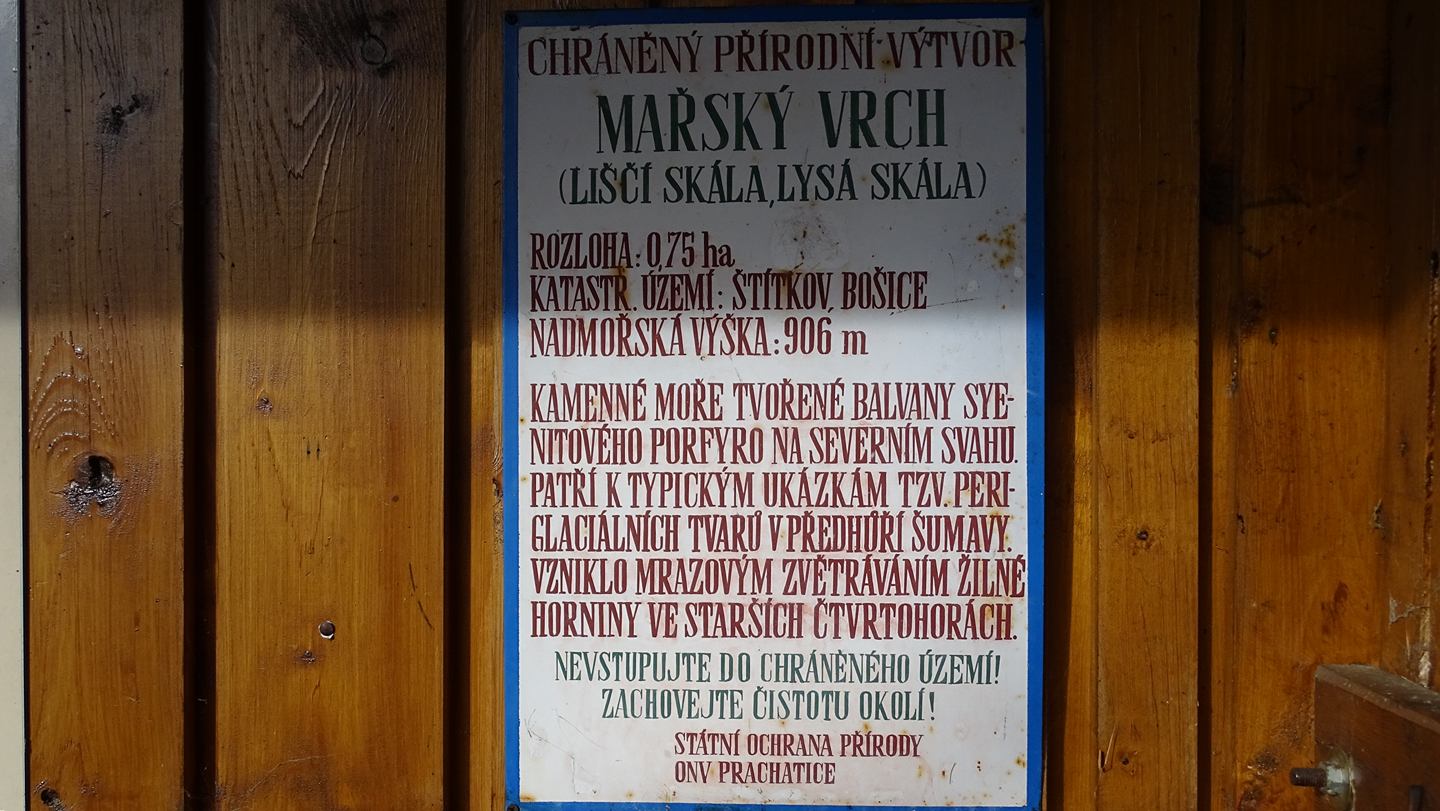 CHRÁNĚNÝ PŘÍRODNÍ VÝTVOR
MAŘSKÝ VRCH
(LIŠČÍ SKÁLA, LYSÁ SKÁLA)
ROZLOHA: 0,75 ha
KATASTR. ÚZEMÍ: ŠTÍTKOV, BOŠICE
NADMOŘSKÁ VÝŠKA: 906 m
KAMENNÉ MOŘE TVOŘENÉ BALVANY SYE-
NITOVÉHO PORFYRO NA SEVERNÍM SVAHU.
PATŘÍ K TYPICKÝM UKÁZKÁM TZV. PERI-
GLACIÁLNÍCH TVARŮ V PŘEDHŮŘÍ ŠUMAVY.
VZNIKLO MRAZOVÝM ZVĚTRÁVÁNÍM ŽILNÉ
HORNINY VE STARŠÍCH ČTVRTOHORÁCH.
NEVSTUPUJTE DO CHRÁNĚNÉHO ÚZEMÍ!
ZACHOVEJTE ČISTOTU OKOLÍ!
STÁTNÍ OCHRANA PŘÍRODY
ONV PRACHATICE